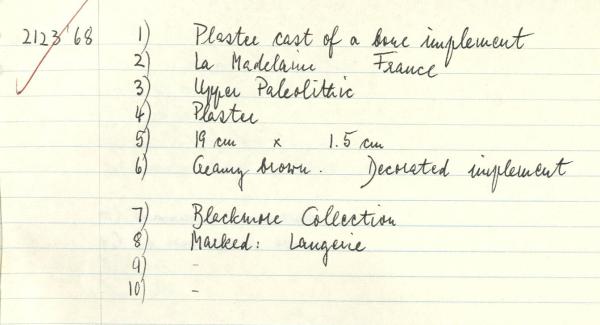 2123'68 1) Plaster cast of a bone implement
2) La Madelaine France
3) Upper Paleolithic
4) Plaster
5) 19 cm x 1.5 cm
6) Creamy brown. Decorated implement
7) Blackmore Collection
8) Marked: Laugerie
9) -
10) -